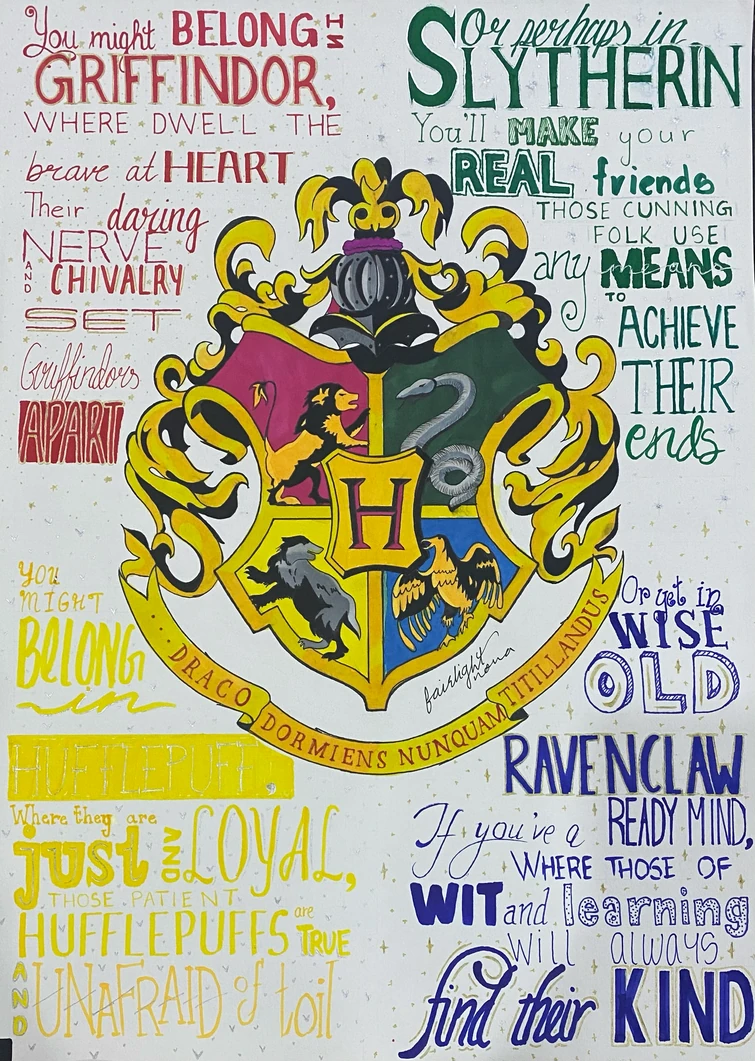 You might BELONG IN
GRIFFINDOR,
WHERE DWELL THE
brave at HEART
Their daring
NERVE
AND CHIVALRY
SET
Griffindors
APART
Or perhaps in
SLYTHERIN
You'll MAKE your
REAL friends
THOSE CUNNING
FOLK USE
any means MEANS
TO
ACHIEVE
THEIR
ends
H
...DRACO DORMIENS NUNQUAM TITILLANDUS
fairlight
nona
YOU
MIGHT
BELONG
in
HUFFLEPUFF.
Where they are
just AND LOYAL,
THOSE PATIENT
HUFFLEPUFFS are TRUE
AND UNAFRAID of toil
Or yet in
WISE
OLD
RAVENCLAW
If you've a READY MIND,
WHERE THOSE OF
WIT and learning
will always
find their KIND